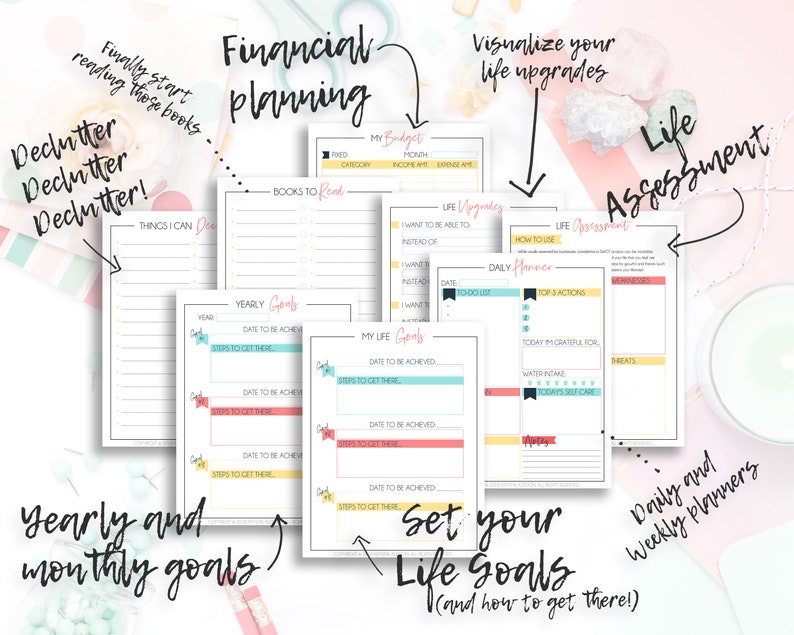 Finally start
reading those books
Financial
planning
Visualize your
life upgrades
Declutter
Declutter
Declutter!
Life
Assessment
MY Budget
FIXED
MONTH:
CATEGORY INCOME AMT. EXPENSE AMT.
BOOKS TO Read
LIFE Upgrades
I WANT TO BE ABLE TO:
INSTEAD OF:
I WANT TO
INSTEAD
I WANT TO
THINGS I CAN
LIFE Assessment
HOW TO USE
WEAKNESSES
THREATS
DAILY Planner
DATE:
TO-DO LIST
TOP 3 ACTIONS
1
2
3
TODAY I'M GRATEFUL FOR...
WATER INTAKE:
TODAY'S SELF CARE
Notes
YEARLY Goals
YEAR:
DATE TO BE ACHIEVED:
Goal
#1
STEPS TO GET THERE...
DATE TO BE ACHIEVED:
Goal
#2
STEPS TO GET THERE...
DATE TO BE ACHIEVED:
Goal
#3
STEPS TO GET THERE...
MY LIFE Goals
DATE TO BE ACHIEVED:
Goal
#1
STEPS TO GET THERE...
DATE TO BE ACHIEVED:
Goal
#2
STEPS TO GET THERE...
DATE TO BE ACHIEVED:
Goal
#3
STEPS TO GET THERE...
Yearly and
monthly goals
Set your
Life Goals
(and how to get there!)
Daily and
Weekly planners